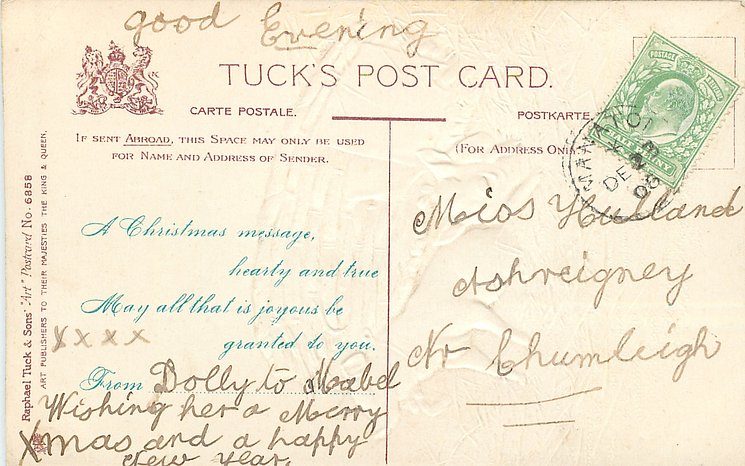 good Evening
TUCK'S POST CARD.
CARTE POSTALE.
POSTKARTE.
IF SENT ABROAD, THIS SPACE MAY ONLY BE USED
FOR NAME AND ADDRESS OF SENDER.
(FOR ADDRESS ONLY)
Raphael Tuck & Sons' "Art" Postcard No. 6858
ART PUBLISHERS TO THEIR MAJESTIES THE KING & QUEEN.
A Christmas message,
hearty and true
May all that is joyous be
granted to you.
x x x x
From Dolly to Mabel
Wishing her a Merry
Xmas and a happy
New Year.
POSTAGE
DE
06
Miss Hulland
Ashreigney
Nr Chumleigh